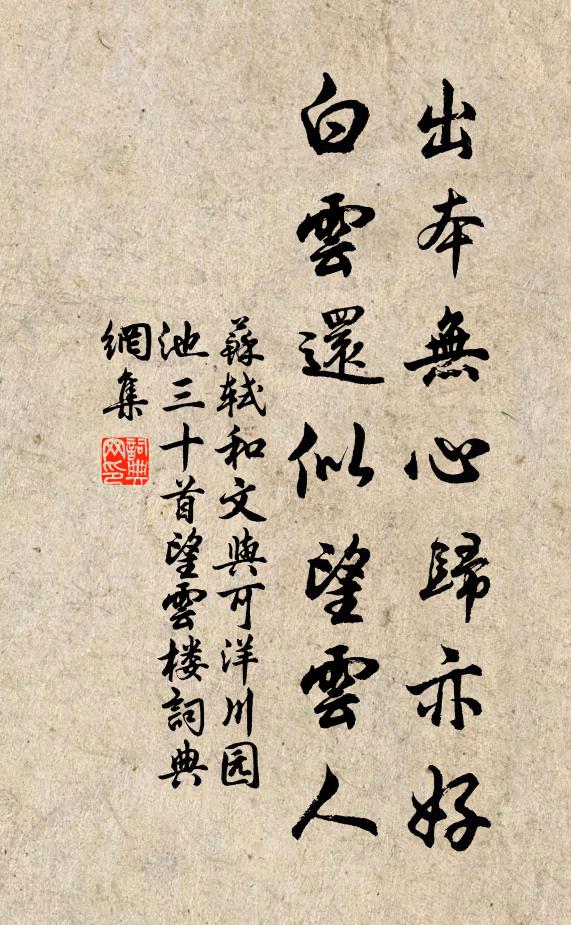 出本無心歸亦好
白雲還似望雲人
蘇軾和文與可洋川园
池三十首望雲楼詞典
網集
詞典网印